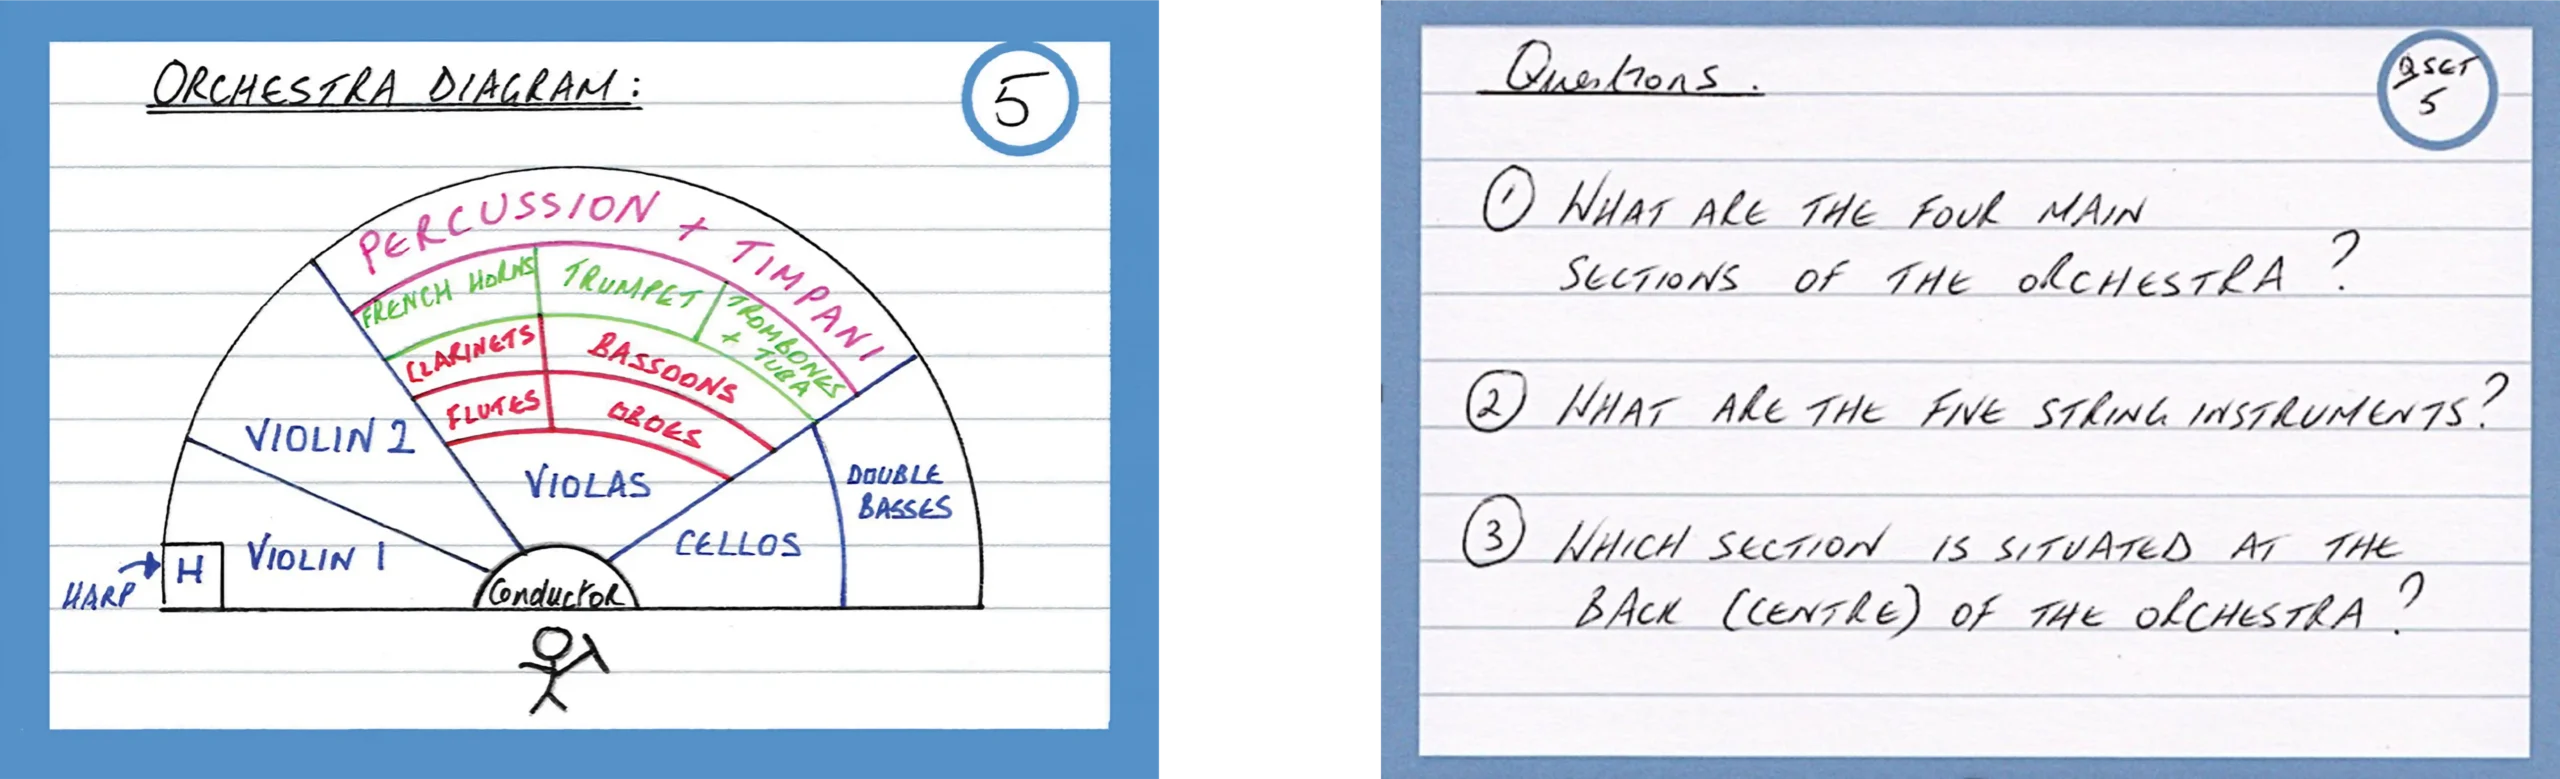 ORCHESTRA DIAGRAM:
5
PERCUSSION + TIMPANI
FRENCH HORNS
TRUMPET
TROMBONES
+ TUBA
CLARINETS
BASSOONS
FLUTES
OBOES
VIOLIN 2
VIOLAS
DOUBLE
BASSES
VIOLIN 1
CELLOS
H
HARP
Conductor
Questions.
QSET
5
1 WHAT ARE THE FOUR MAIN
SECTIONS OF THE ORCHESTRA?
2 WHAT ARE THE FIVE STRING INSTRUMENTS?
3 WHICH SECTION IS SITUATED AT THE
BACK (CENTRE) OF THE ORCHESTRA?